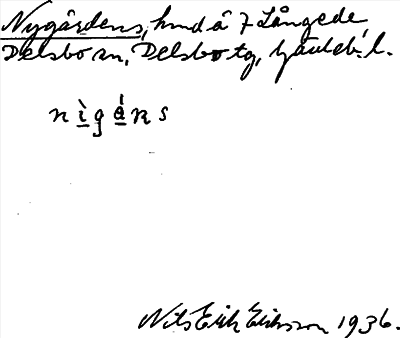 Nygårdens, hmd å 7 Långede
Delsbo sn, Delsbo tg, Gävleb. l.
nìgá̱ns
Nils Erik Eriksson 1936.